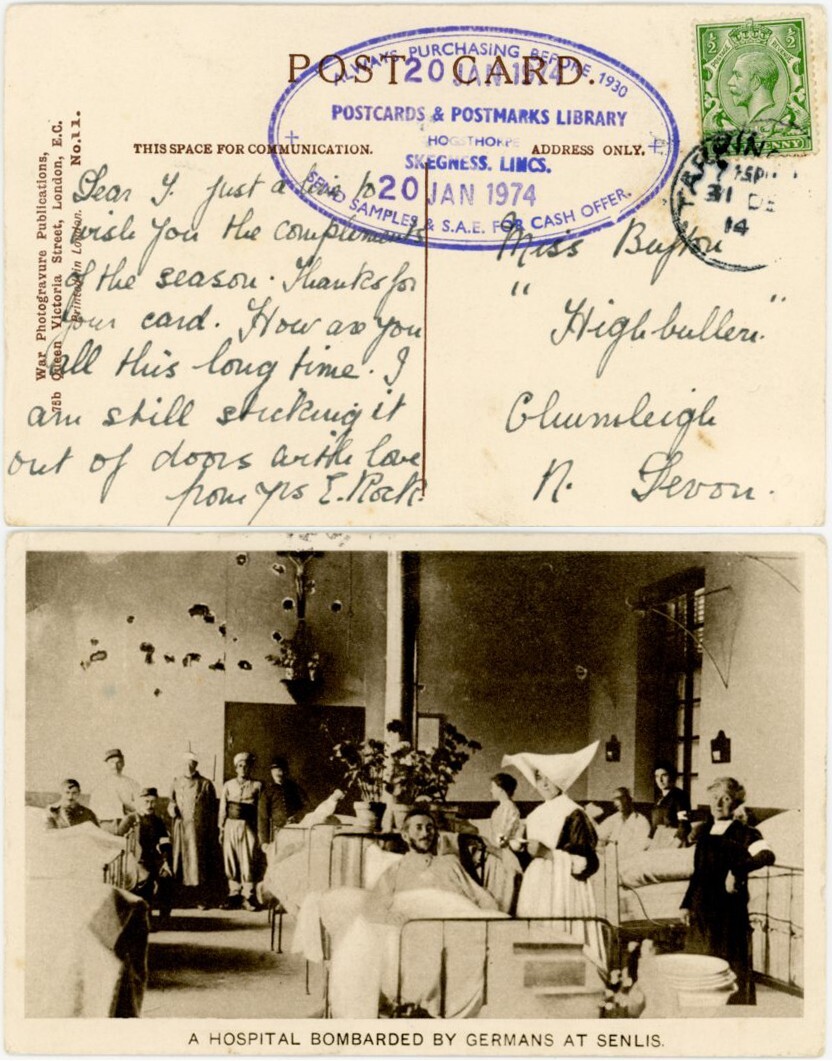 POST CARD.
ALWAYS PURCHASING BEFORE 1930
20 JAN 1974
POSTCARDS & POSTMARKS LIBRARY
HOGSTHORPE
SKEGNESS. LINCS.
20 JAN 1974
SEND SAMPLES & S.A.E. FOR CASH OFFER.
½ ½
PENNY
31 DE
14
War Photogravure Publications,
75b Queen Victoria Street, London, E.C.
Printed in London.
No. 11.
THIS SPACE FOR COMMUNICATION.
ADDRESS ONLY.
Dear Y. Just a line to
wish you the compliments
of the season. Thanks for
your card. How are you
all this long time. I
am still sticking it
out of doors with love
from yrs E. Rock.
Miss
" Highbullen "
Chumleigh
N. Devon.
A HOSPITAL BOMBARDED BY GERMANS AT SENLIS.